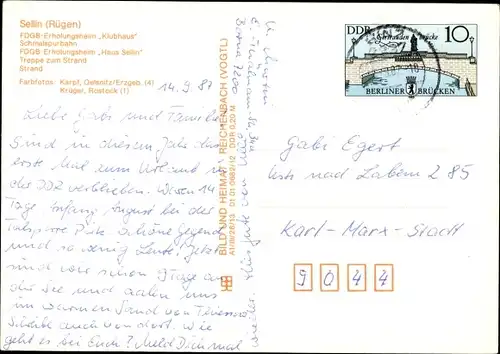 Sellin (Rügen)
FDGB-Erholungsheim „Klubhaus"
Schmalspurbahn
FDGB-Erholungsheim „Haus Sellin"
Treppe zum Strand
Strand
Farbfotos: Karpf, Oelsnitz/Erzgeb. (4)
Krüger, Rostock (1)
14.9.87
Liebe Gabi und Familie,
Sind in diesem Jahr das
erste Mal zum Urlaub in
der DDR verblieben. Waren 14
Tage Anfang August bei der
Talsperre Pirk. Schöne Gegend
und so wenig Leute. Jetzt
sind wir schon 9 Tage an
der See und aalen uns
im warmen Sand von
Scheibe auch von dort. Wie
geht es bei Euch? Meld Dich mal
wieder. Alles Gute von
BILD UND HEIMAT REICHENBACH (VOGTL)
A1/B/28/13 01 01 0662/12 DDR 0,20 M
DDR Gertrauden Brücke 10
BERLINER BRÜCKEN
Gabi Egert
Usti nad Labem 285
Karl-Marx-Stadt
9 0 4 4